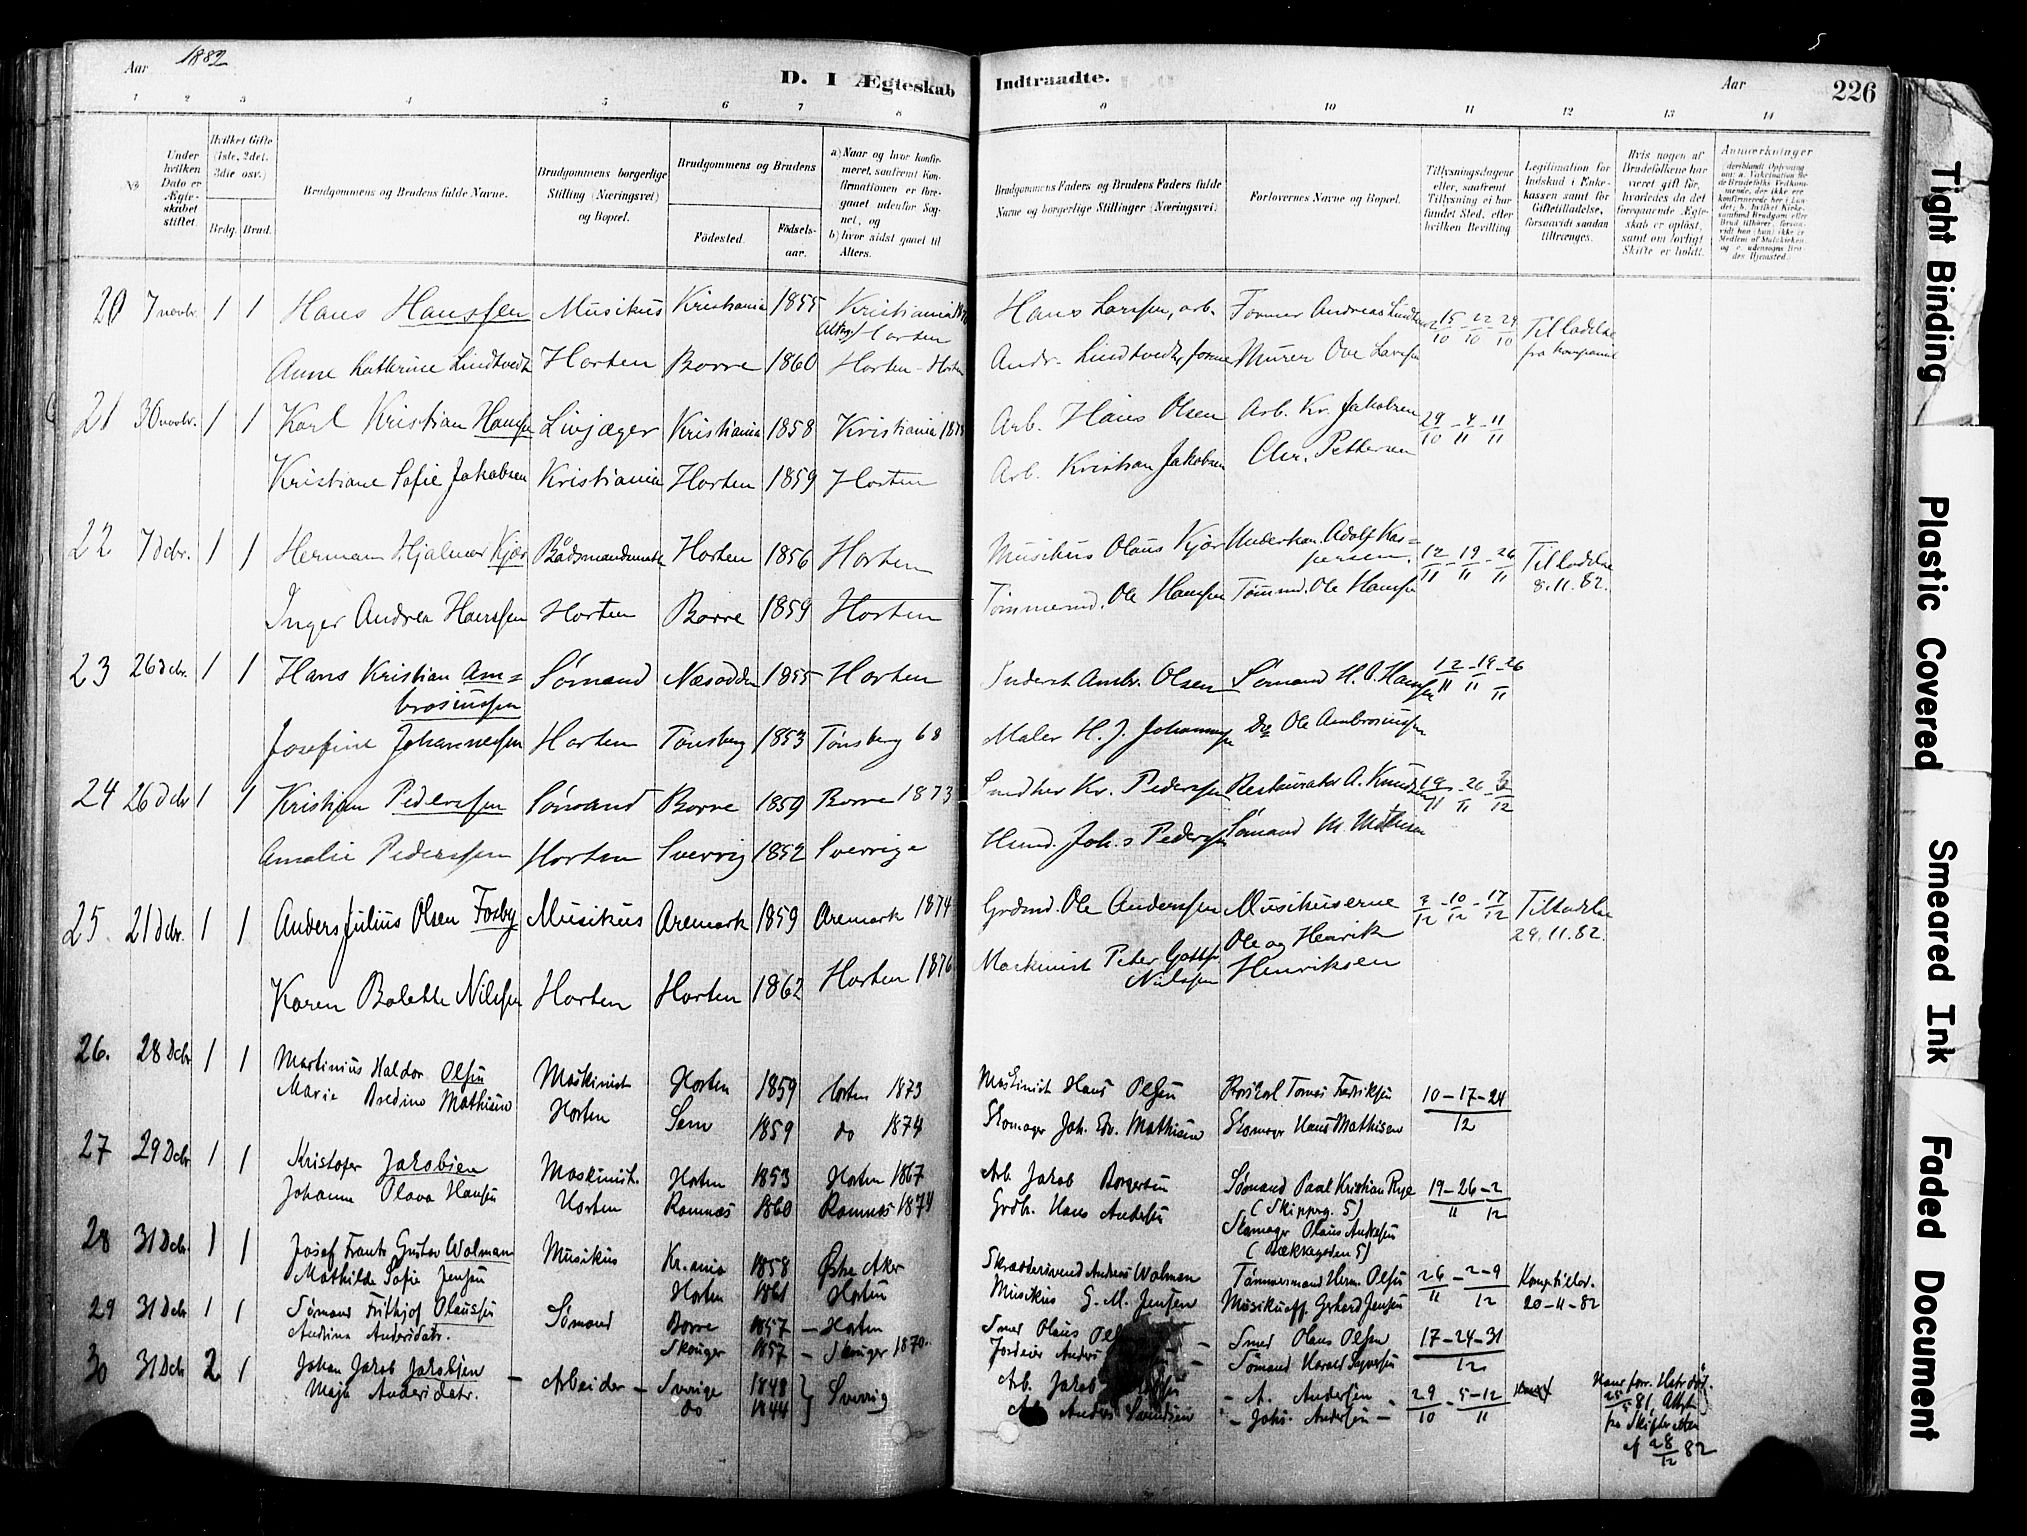 Aar 1882
D. I Ægteskab Indtraadte.
Aar 226
1 2 3 4 5 6 7 8 9 10 11 12 13 14
№
Under hvilken Dato er Ægteskabet stiftet.
Hvilket Gifte (1ste, 2det, 3die osv.)
Brdg. Brud.
Brudgommens og Brudens fulde Navne.
Brudgommens borgerlige Stilling (Næringsvei) og Bopæl.
Brudgommens og Brudens
Fødested. Fødselsaar.
a) Naar og hvor konfirmeret, saafremt Konfirmationen er foregaaet udenfor Sognet, og
b) hvor sidst gaaet til Alters.
Brudgommens Faders og Brudens Faders fulde Navne og borgerlige Stillinger (Næringsvei).
Forlovernes Navne og Bopæl.
Tillysningsdagene eller, saafremt Tillysning ei har fundet Sted, efter hvilken Bevilling
Legitimation for Indskud i Enkekassen samt for Giftetilladelse, forsaavidt saadan tiltrænges.
Hvis nogen af Brudefolkene har været gift før, hvorledes da det foregaaende Ægteskab er opløst, samt om lovligt Skifte er holdt.
Anmærkninger
20 7 novbr. 1 1 Hans Hanssen Musikus Kristiania 1855 Kristiania Horten Hans Larssen, arb. Former Andreas 15/10 - 22/10 29/10 Tilladelse fra
Anne Kathrine Lindtvedt Horten Borre 1860 Horten - Horten Andr. Lindtvedt, former Murer Ove Larssen
21 30 novbr. 1 1 Karl Kristian Hanssen Livjæger Kristiania 1858 Kristiania Arb. Hans Olsen Arb. Kr. Jakobsen 29/10 - 4/11 11/11
Kristiane Sofie Jakobsen Kristiania Horten 1859 Horten Arb. Kristian Jakobsen Chr. Pettersen
22 7 dcbr. 1 1 Herman Hjalmar Kjær Horten 1856 Horten Musikus Olaus Kjær Underkan. Adolf Kaspersen. 12/11 - 19/11 - 26/11 Tilladelse 8.11.82.
Inger Andrea Hanssen Horten Borre 1859 Horten Tømmermd. Ole Hanssen Tømmd. Ole Hanssen
23 26 dcbr. 1 1 Hans Kristian Ambrosiussen Sømand Næsodden 1855 Horten Inderst Ambr. Olsen Sømand H. O. Hanssen 12/11 - 19/11 - 26/11
Josefine Johannessen Horten Tønsberg 1853 Tønsberg 68 Maler H. J. Johannessen Do Ole Ambrosiussen
24 26 dcbr 1 1 Kristian Pederssen Sømand Borre 1859 Borre 1873 Kr. Pederssen Restauratør A. Knudsen 19/11 - 26/11 - 3/12
Amalie Pederssen Horten Sverrig 1852 Sverrige Joh.s Pederssen Sømand M. Mathisen
25. 21 dcbr. 1 1 Anders Julius Olsen Fosby Musikus Aremark 1859 Aremark 1874 Grdmd. Ole Anderssen Musikuserne Ole og Henrik Henriksen 3/12 - 10/12 - 17/12 Tilladelse 29.11.82.
Karen Bolette Nilssen Horten Horten 1862 Horten 1876 Maskinist Peter Gottfr. Nilssen
26. 28 Dcbr 1 1 Martinius Haldor Olsen Maskinist Horten 1859 Horten 1873 Maskinist Hans Olsen Tomas Fredriksen 10 - 17 - 24 / 12
Marie Bredine Mathisen Horten Sem 1859 do 1874 Skomager Joh. Edv. Mathisen Skomager Hans Mathisen
27 29 Dcbr 1 1 Kristofer Jakobsen Maskinist. Horten 1853 Horten 1867 Arb. Jakob Borgersen Sømand Paul Kristian Rye (Skipperg. 5) 19 - 26 - 2 / 11 12
Johanne Olava Hansen Horten Ramnæs 1860 Ramnæs 1874 Grdbr. Hans Andersen Skomager Olaus Andersen (Bækkegaden 5)
28 31 Dcbr. 1 1 Josef Frantz Gustav Wolman Musikus Kr.ania 1858 Østre Aker Skræddersvend Andreas Wolman Tømmermand Herm. Olsen 26 - 2 - 9 / 11 12 20-11-82
Mathilde Sofie Jensen Horten 1861 Horten Musikus G. M. Jensen Gerhard Jensen
29 31 Dcbr 1 1 Sømand Frithjof Olaussen Sømand Borre 1857 - Horten Smed Olaus Smed Olaus Olsen 17 - 24 - 31 / 12
Andrine Andersdatr. Skouger 1857 - Skouger 1870. Anders Sømand Harald Syversen
30 31 Dcbr 2 1 Johan Jakob Jakobsen Arbeider Sverrige 1848 Sverrig Arb. Jakob A. Andersen 29/10 - 5 - 12 / 11
Maja Andersdatr. do 1844 Anders Svendsen Johs. Andersen
fra Skifteretten af 28/12 82
Tight Binding
Plastic Covered
Smeared Ink
Faded Document